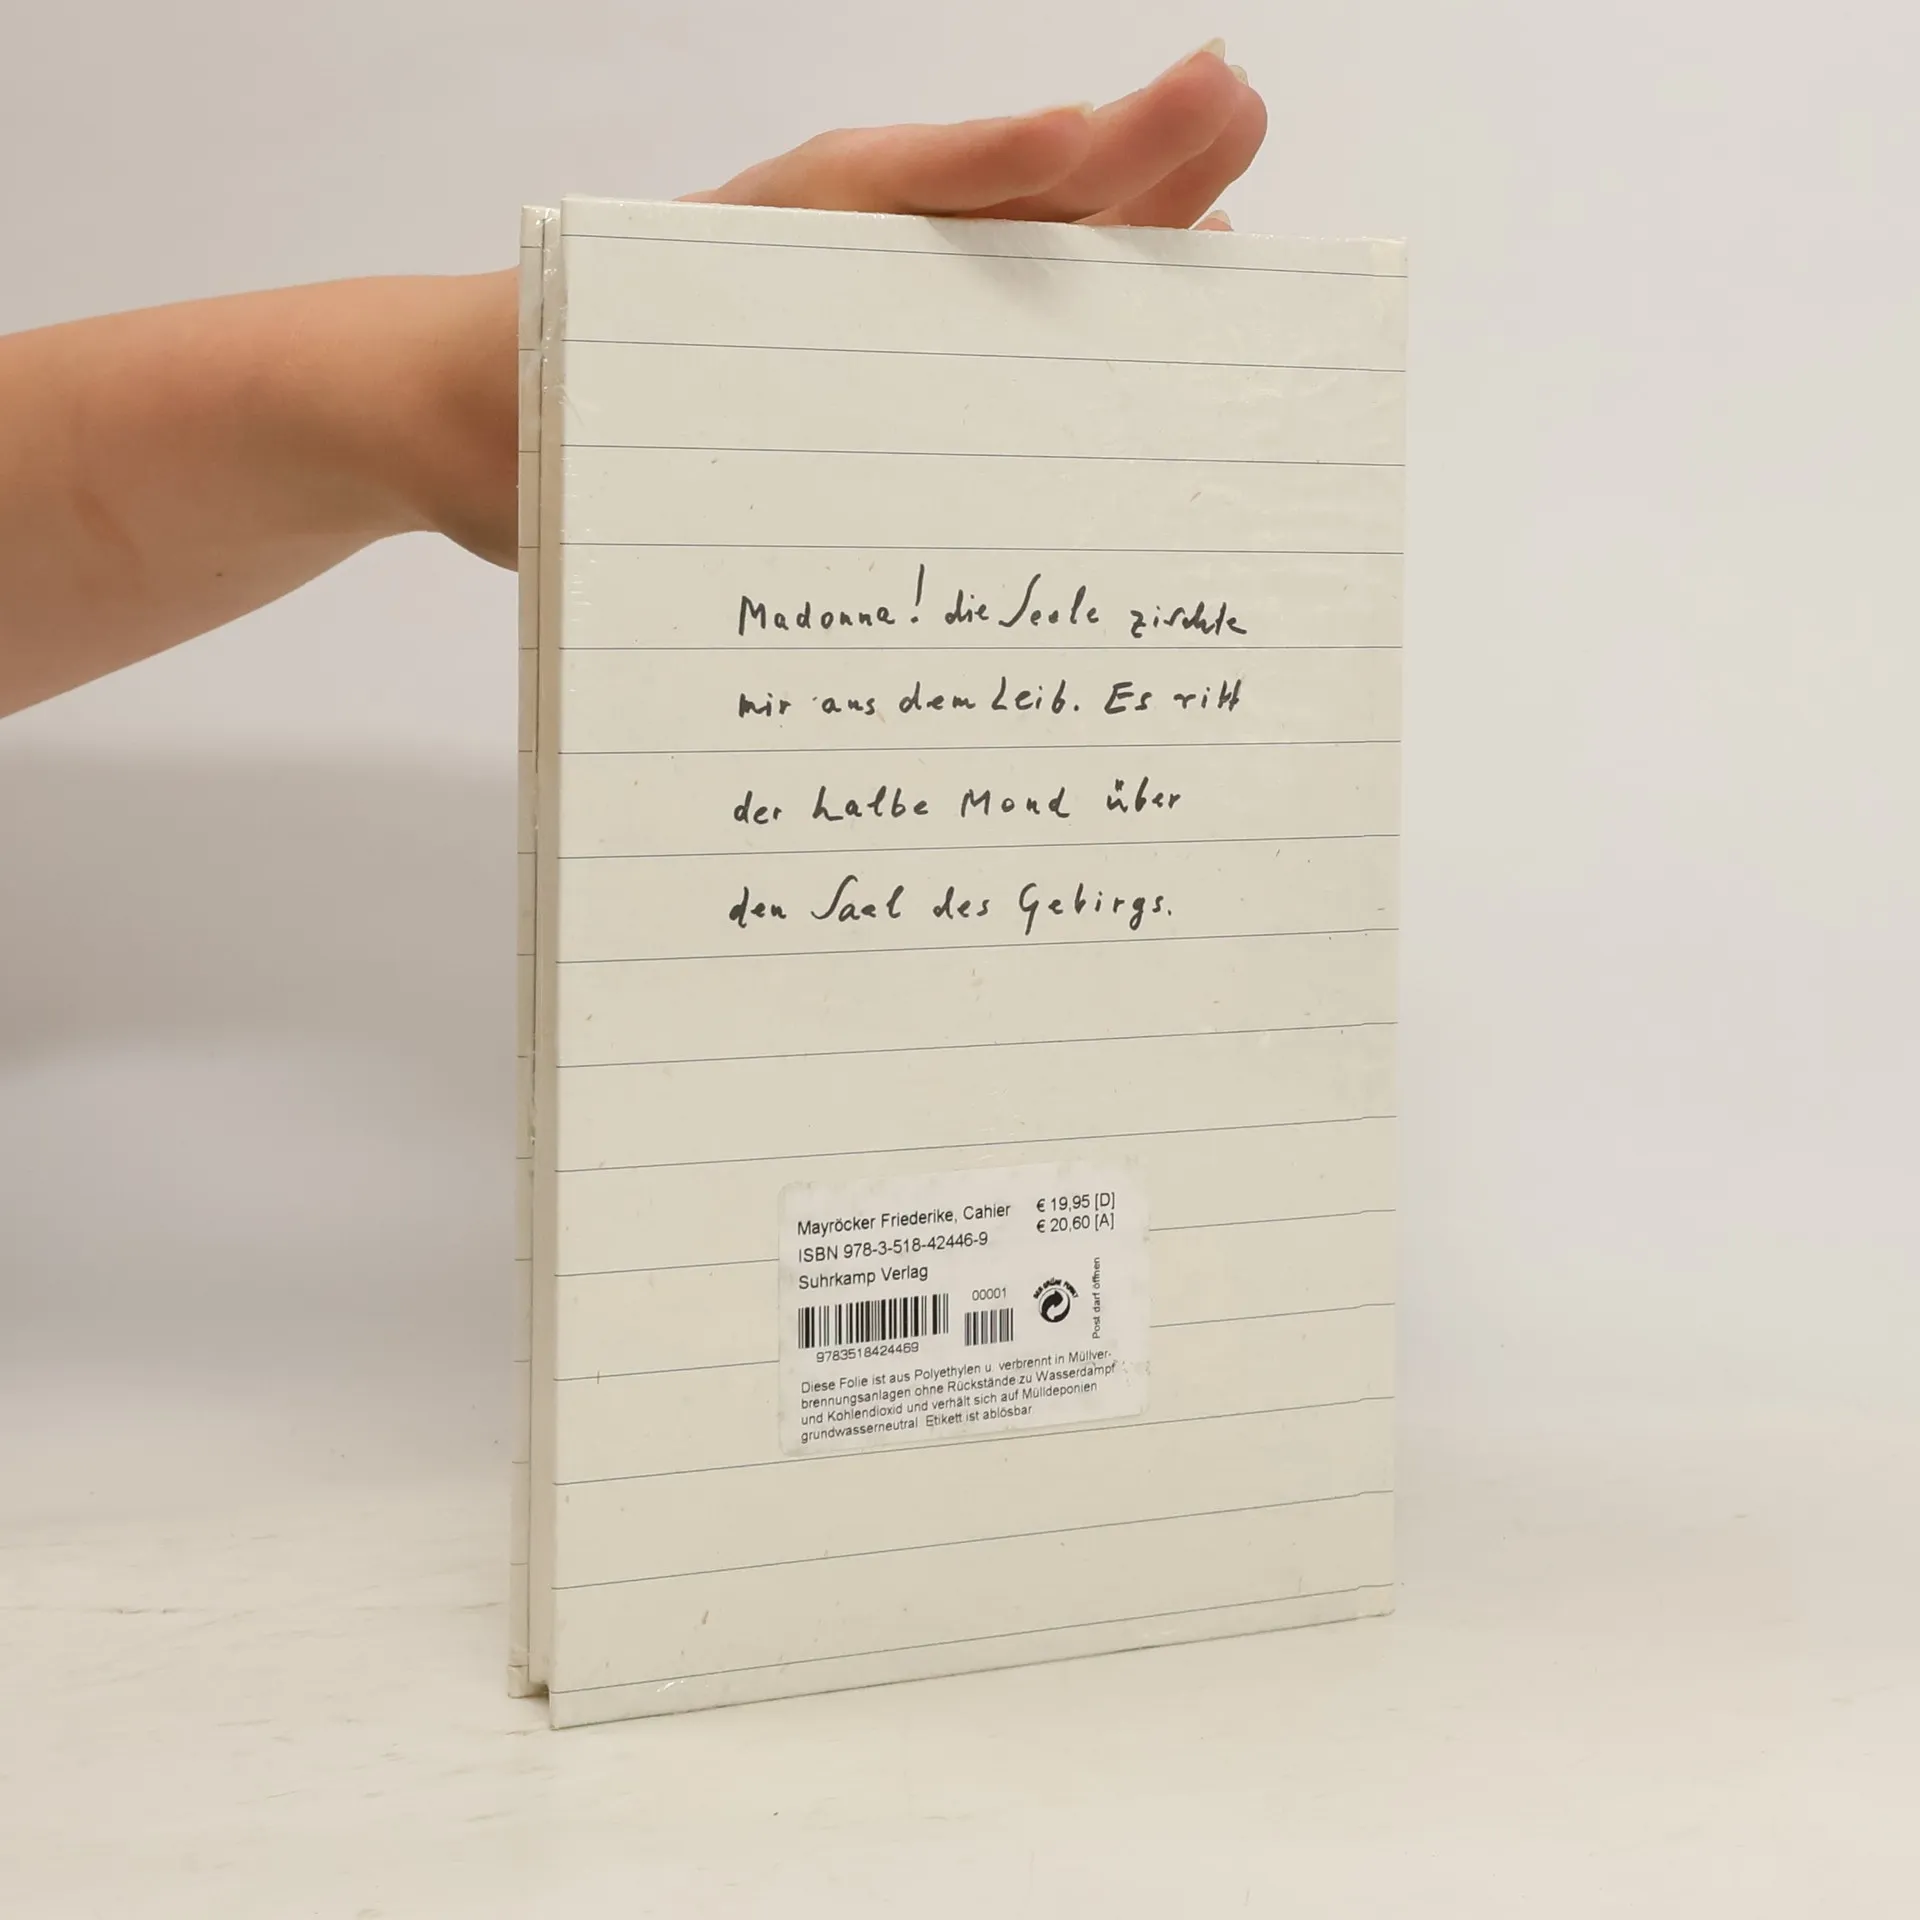 Madonna! die Seele zischte
mir aus dem Leib. Es ritt
der halbe Mond über
den Saal des Gebirgs.
Mayröcker Friederike, Cahier € 19,95 [D]
€ 20,60 [A]
ISBN 978-3-518-42446-9
Suhrkamp Verlag
00001
DER GRÜNE PUNKT
Post darf öffnen
9783518424469
Diese Folie ist aus Polyethylen u. verbrennt in Müllver-
brennungsanlagen ohne Rückstände zu Wasserdampf
und Kohlendioxid und verhält sich auf Mülldeponien
grundwasserneutral. Etikett ist ablösbar